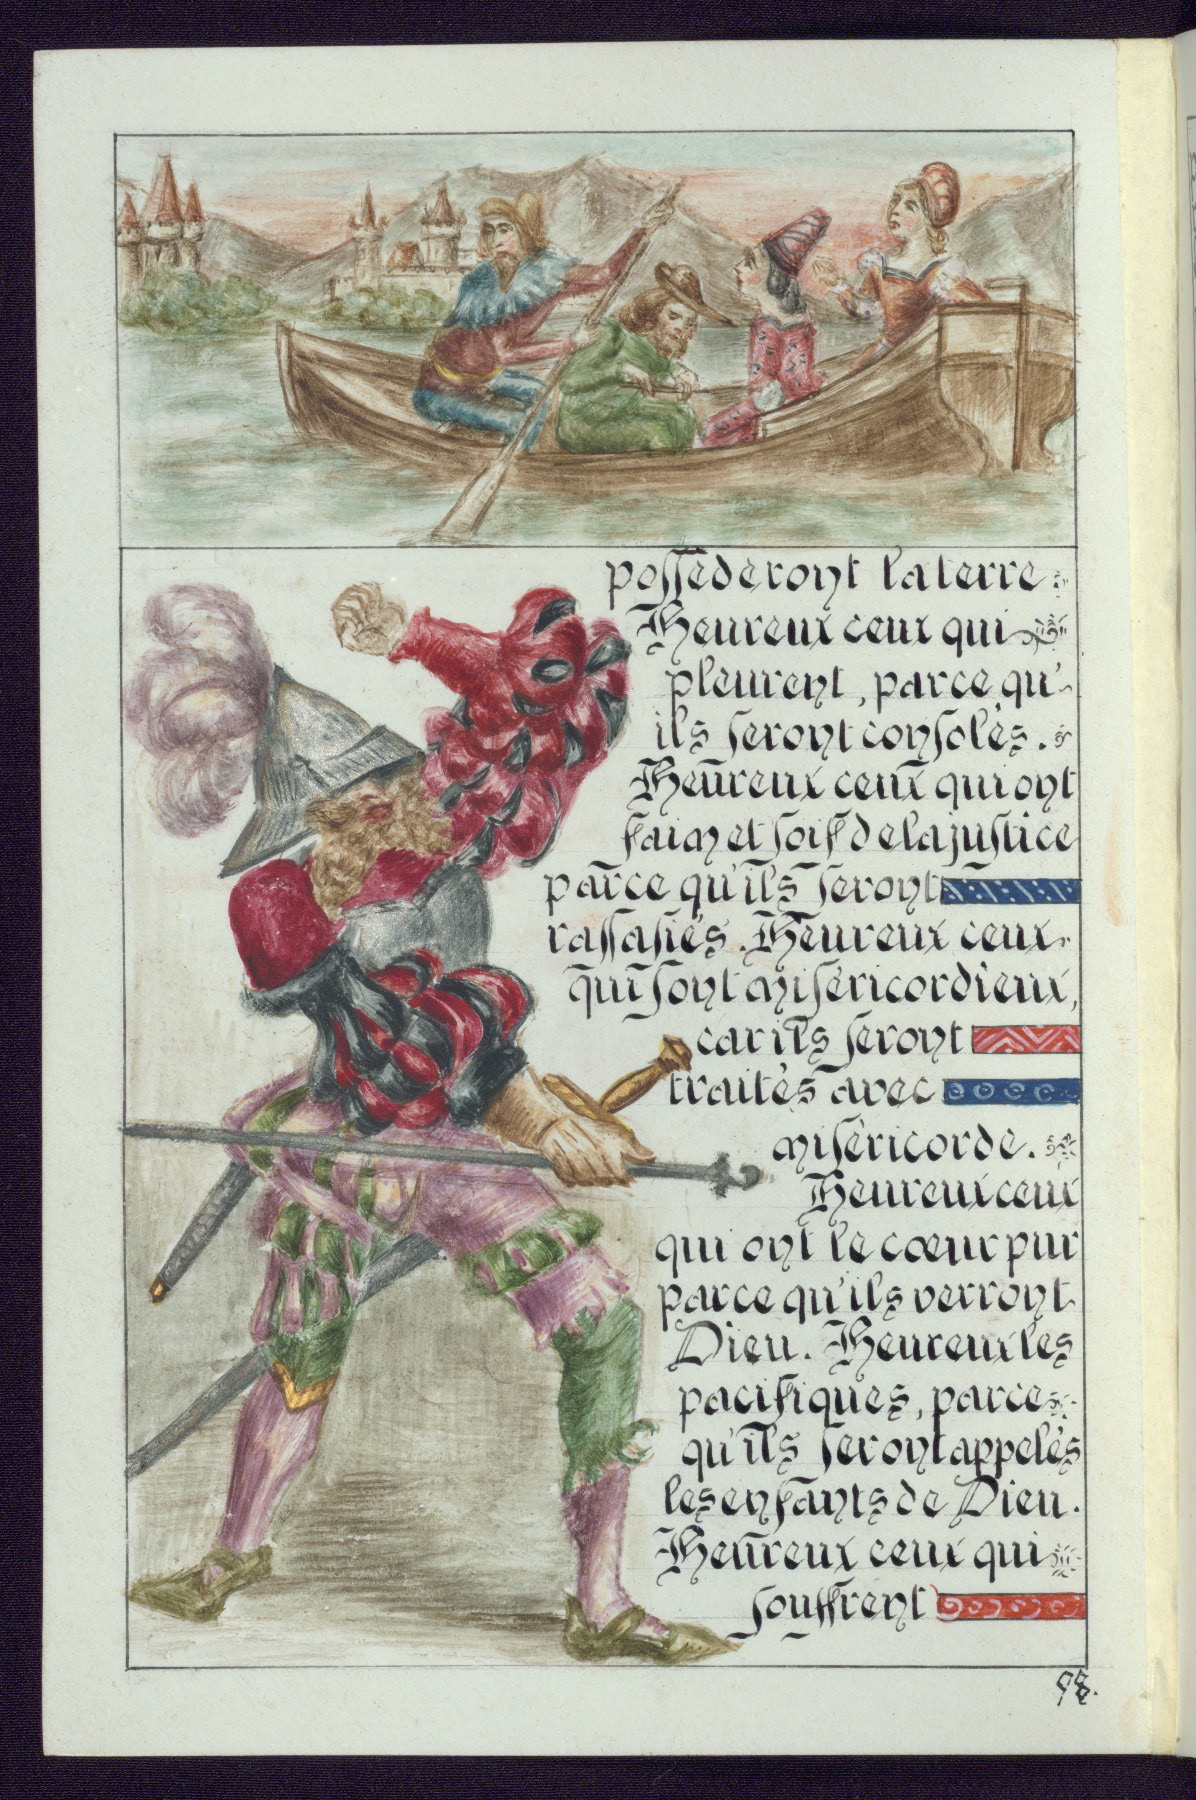 possèderont la terre
Heureux ceux qui
pleurent, parce qu'
ils seront consolés.
Heureux ceux qui ont
faim et soif de la justice
parce qu'ils seront
rassasiés. Heureux ceux
qui sont miséricordieux,
car ils seront
traités avec
miséricorde.
Heureux ceux
qui ont le cœur pur
parce qu'ils verront
Dieu. Heureux les
pacifiques, parce
qu'ils seront appelés
les enfants de Dieu.
Heureux ceux qui
souffrent
98.